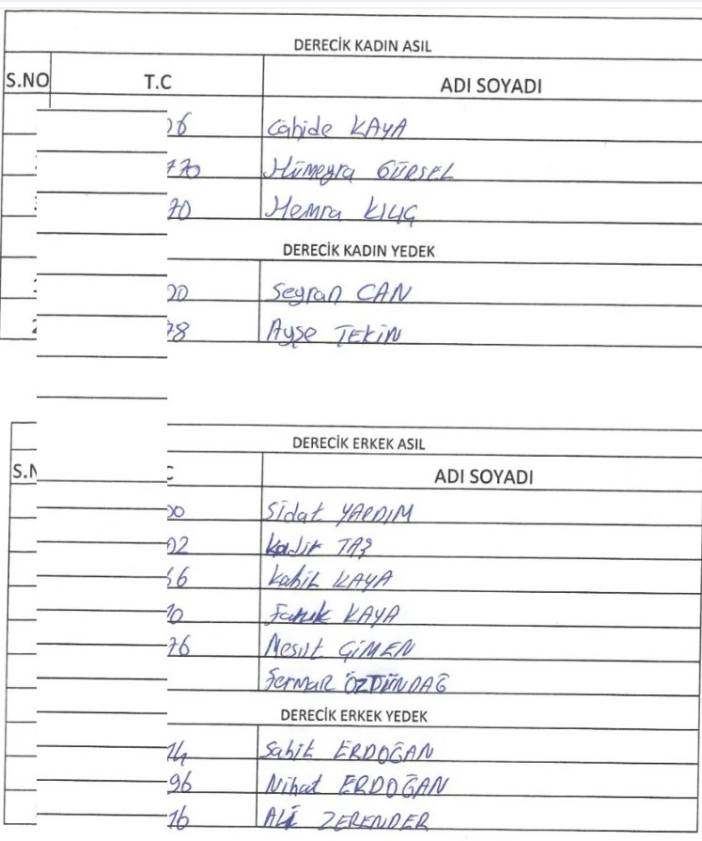 DERECİK KADIN ASIL
S.NO T.C ADI SOYADI
06 Cahide KAYA
770 Hümeyra GÜRSEL
70 Hemra KILIÇ
DERECİK KADIN YEDEK
00 Seyran CAN
2 78 Ayşe TEKİN
DERECİK ERKEK ASIL
S.N C ADI SOYADI
00 Sidat YARDIM
02 Kadir TAŞ
66 Kabil KAYA
10 Faruk KAYA
76 Mesut ÇİMEN
Fermar ÖZDÜNDAĞ
DERECİK ERKEK YEDEK
14 Sabit ERDOĞAN
96 Nihat ERDOĞAN
16 Ali ZERENDER